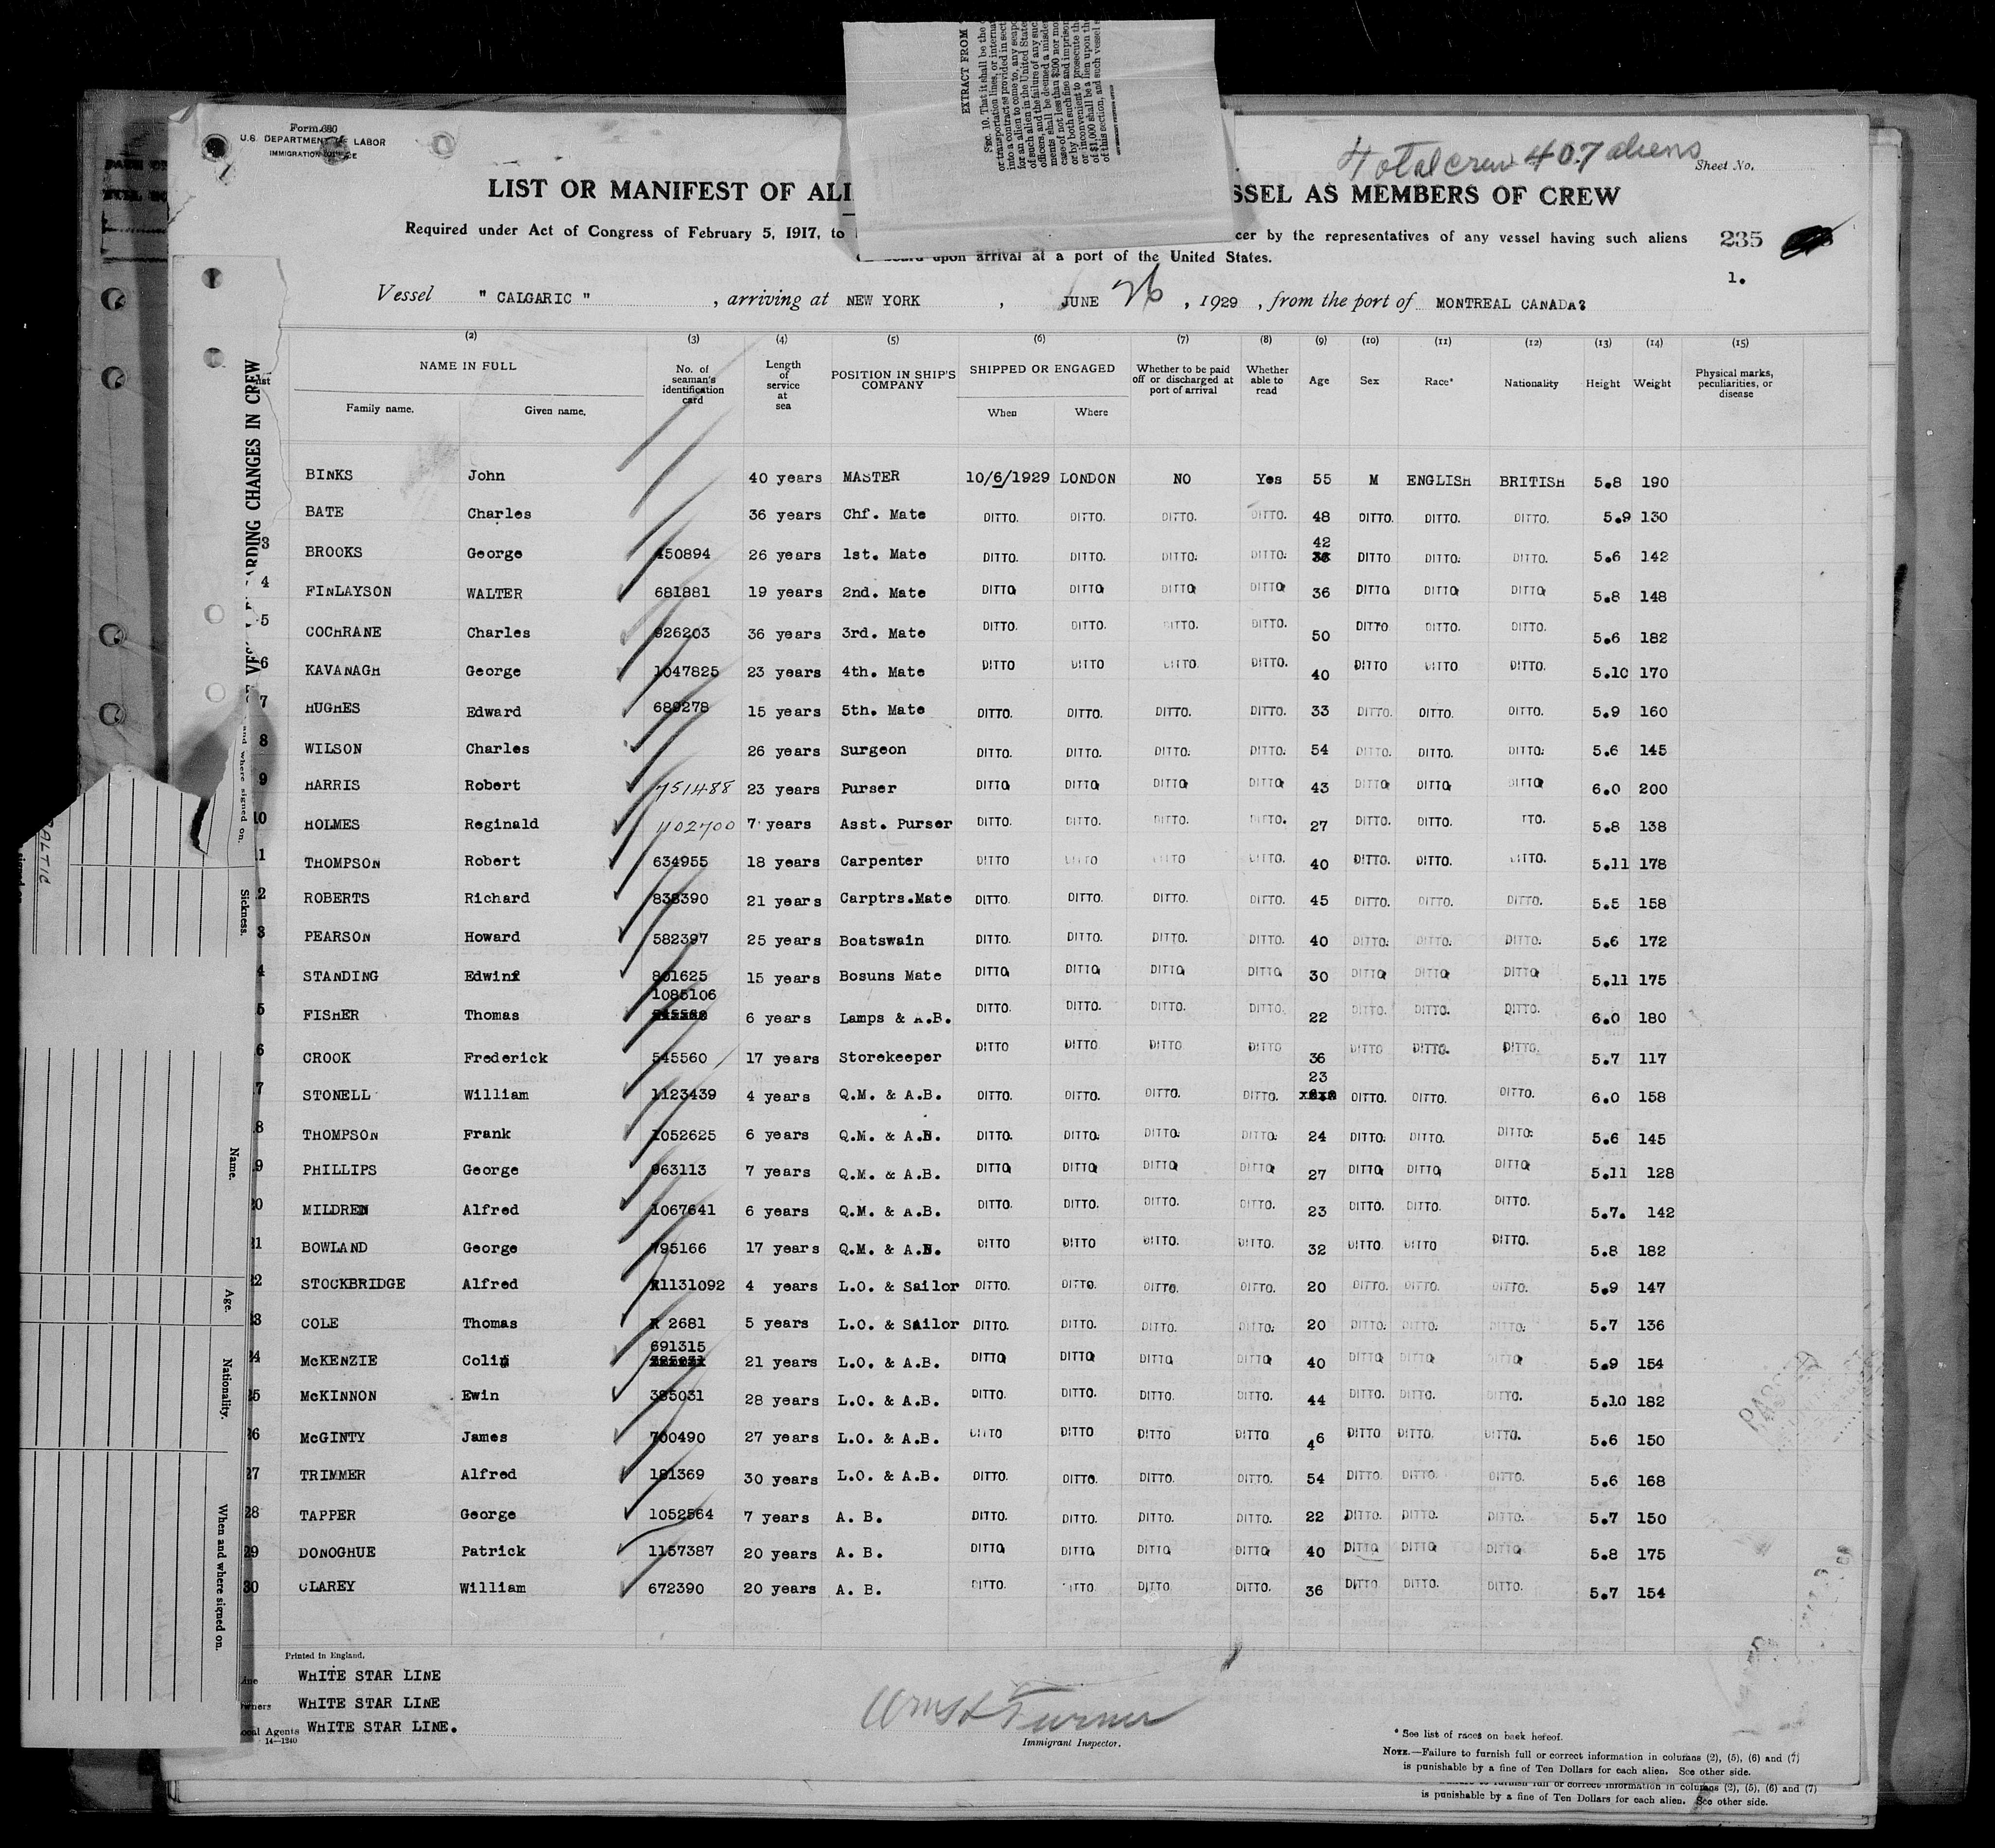 EXTRACT FROM
SEC. 10. That it shall be the
or transportation lines, or internat
into a contract as provided in sect
for an alien to come to, any seapo
of such alien in the United State
officers, and the failure of any suc
ments shall be deemed a misdem
case of not less than $200 nor mo
or by both such fine and imprison
or inconvenient to prosecute the
of $1,000 shall be a lien upon the
of this section, and such vessel s
Form 680
U.S. DEPARTMENT OF LABOR
IMMIGRATION SERVICE
Total crew 407 aliens
Sheet No.
LIST OR MANIFEST OF ALI SSEL AS MEMBERS OF CREW
Required under Act of Congress of February 5, 1917, to cer by the representatives of any vessel having such aliens
upon arrival at a port of the United States.
235
1.
Vessel " CALGARIC " , arriving at NEW YORK , JUNE 26 , 1929 , from the port of MONTREAL CANADA?
(2) (3) (4) (5) (6) (7) (8) (9) (10) (11) (12) (13) (14) (15)
NAME IN FULL No. of seaman's identification card Length of service at sea POSITION IN SHIP'S COMPANY SHIPPED OR ENGAGED Whether to be paid off or discharged at port of arrival Whether able to read Age Sex Race* Nationality Height Weight Physical marks, peculiarities, or disease
Family name. Given name. When Where
BINKS John 40 years MASTER 10/6/1929 LONDON NO Yes 55 M ENGLISH BRITISH 5.8 190
BATE Charles 36 years Chf. Mate DITTO. DITTO. DITTO. DITTO. 48 DITTO. DITTO. DITTO. 5.9 130
42
3 BROOKS George 450894 26 years 1st. Mate DITTO. DITTO. DITTO. DITTO. 36 DITTO DITTO. DITTO. 5.6 142
4 FINLAYSON WALTER 681881 19 years 2nd. Mate DITTO DITTO DITTO DITTO 36 DITTO DITTO DITTO 5.8 148
5 COCHRANE Charles 926203 36 years 3rd. Mate DITTO. DITTO. DITTO. DITTO. 50 DITTO DITTO. DITTO. 5.6 182
6 KAVANAGH George 1047825 23 years 4th. Mate DITTO DITTO DITTO DITTO. 40 DITTO DITTO DITTO. 5.10 170
7 HUGHES Edward 689278 15 years 5th. Mate DITTO. DITTO. DITTO. DITTO. 33 DITTO. DITTO. DITTO. 5.9 160
8 WILSON Charles 26 years Surgeon DITTO. DITTO. DITTO. DITTO. 54 DITTO. DITTO. DITTO. 5.6 145
9 HARRIS Robert 751488 23 years Purser DITTO DITTO DITTO DITTO 43 DITTO DITTO DITTO 6.0 200
10 HOLMES Reginald 1102700 7 years Asst. Purser DITTO. DITTO. DITTO. DITTO. 27 DITTO. DITTO. TTO. 5.8 138
1 THOMPSON Robert 634955 18 years Carpenter DITTO DITTO DITTO DITTO. 40 DITTO. DITTO. DITTO. 5.11 178
2 ROBERTS Richard 838390 21 years Carptrs.Mate DITTO. DITTO. DITTO. DITTO. 45 DITTO. DITTO. DITTO. 5.5 158
3 PEARSON Howard 582397 25 years Boatswain DITTO. DITTO. DITTO. DITTO. 40 DITTO. DITTO. DITTO. 5.6 172
4 STANDING Edwin 801625 15 years Bosuns Mate DITTO DITTO DITTO DITTO 30 DITTO DITTO DITTO 5.11 175
1085106
5 FISHER Thomas 6 years Lamps & A.B. DITTO. DITTO. DITTO. DITTO. 22 DITTO. DITTO. DITTO. 6.0 180
6 CROOK Frederick 545560 17 years Storekeeper DITTO DITTO DITTO DITTO 36 DITTO DITTO. DITTO. 5.7 117
23
7 STONELL William 1123439 4 years Q.M. & A.B. DITTO. DITTO. DITTO. DITTO. DITTO. DITTO. DITTO. 6.0 158
8 THOMPSON Frank 1052625 6 years Q.M. & A.B. DITTO. DITTO. DITTO. DITTO. 24 DITTO. DITTO. DITTO. 5.6 145
9 PHILLIPS George 963113 7 years Q.M. & A.B. DITTO DITTO DITTO DITTO 27 DITTO DITTO DITTO 5.11 128
20 MILDREN Alfred 1067641 6 years Q.M. & A.B. DITTO. DITTO. DITTO. DITTO. 23 DITTO. DITTO. DITTO. 5.7. 142
21 BOWLAND George 795166 17 years Q.M. & A.B. DITTO DITTO DITTO. DITTO. 32 DITTO. DITTO DITTO. 5.8 182
22 STOCKBRIDGE Alfred R1131092 4 years L.O. & Sailor DITTO. DITTO. DITTO. DITTO. 20 DITTO. DITTO. DITTO. 5.9 147
23 COLE Thomas R 2681 5 years L.O. & Sailor DITTO. DITTO. DITTO. DITTO. 20 DITTO. DITTO. DITTO. 5.7 136
691315
24 McKENZIE Colin 21 years L.O. & A.B. DITTO DITTO DITTO DITTO 40 DITTO DITTO DITTO 5.9 154
25 McKINNON Ewin 385031 28 years L.O. & A.B. DITTO. DITTO. DITTO. DITTO. 44 DITTO. DITTO. DITTO. 5.10 182
26 McGINTY James 700490 27 years L.O. & A.B. DITTO DITTO DITTO DITTO 46 DITTO DITTO. DITTO. 5.6 150
27 TRIMMER Alfred 181369 30 years L.O. & A.B. DITTO. DITTO. DITTO. DITTO. 54 DITTO. DITTO. DITTO. 5.6 168
28 TAPPER George 1052564 7 years A. B. DITTO. DITTO. DITTO. DITTO. 22 DITTO. DITTO. DITTO. 5.7 150
29 DONOGHUE Patrick 1157387 20 years A. B. DITTO DITTO DITTO DITTO 40 DITTO DITTO DITTO 5.8 175
30 CLAREY William 672390 20 years A. B. DITTO. DITTO. DITTO DITTO. 36 DITTO DITTO. DITTO. 5.7 154
PASSED
Printed in England.
WHITE STAR LINE
Owners WHITE STAR LINE
Local Agents WHITE STAR LINE.
14—1240
Turner
Immigrant Inspector.
* See list of races on back hereof.
NOTE.—Failure to furnish full or correct information in columns (2), (5), (6) and (7)
is punishable by a fine of Ten Dollars for each alien. See other side.
furnish full or correct information in columns (2), (5), (6) and (7)
is punishable by a fine of Ten Dollars for each alien. See other side.
RDING CHANGES IN CREW
and where signed on.
Sickness.
Name.
Age.
Nationality.
When and where signed on.
BALTIC